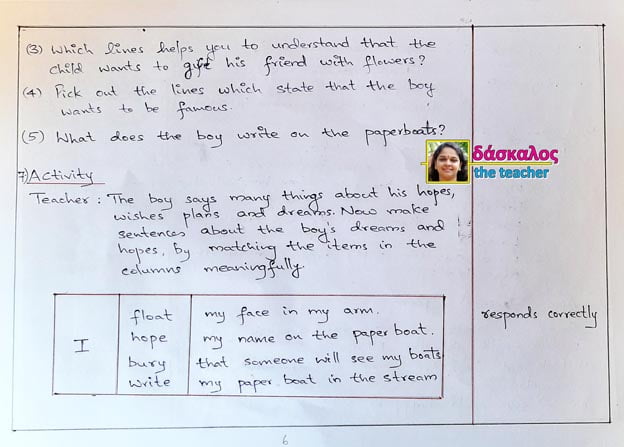 (3) Which lines helps you to understand that the
child wants to gift his friend with flowers?
(4) Pick out the lines which state that the boy
wants to be famous.
(5) What does the boy write on the paperboats?
δάσκαλος
the teacher
7) Activity
Teacher : The boy says many things about his hopes,
wishes plans and dreams. Now make
sentences about the boy's dreams and
hopes, by matching the items in the
columns meaningfully.
I
float my face in my arm.
hope my name on the paper boat.
bury that someone will see my boats
write my paper boat in the stream
responds correctly
6